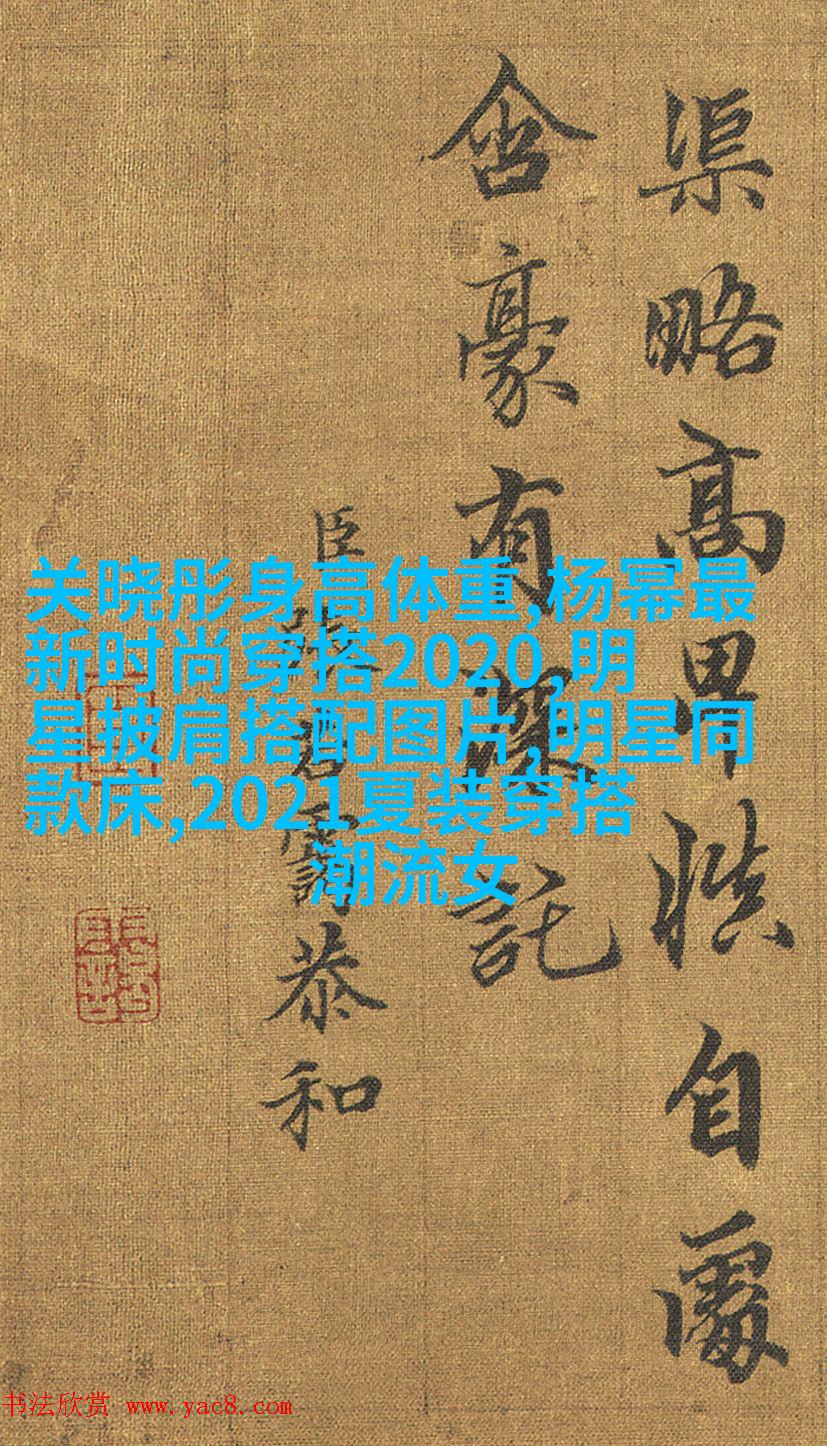 渠略高卑自
含豪有託
臣張若靄恭和
关晓彤身高体重,杨幂最
新时尚穿搭2020,明
星披肩搭配图片,明星同
款床,2021夏装穿搭
潮流女
书法欣赏 www.yac8.com